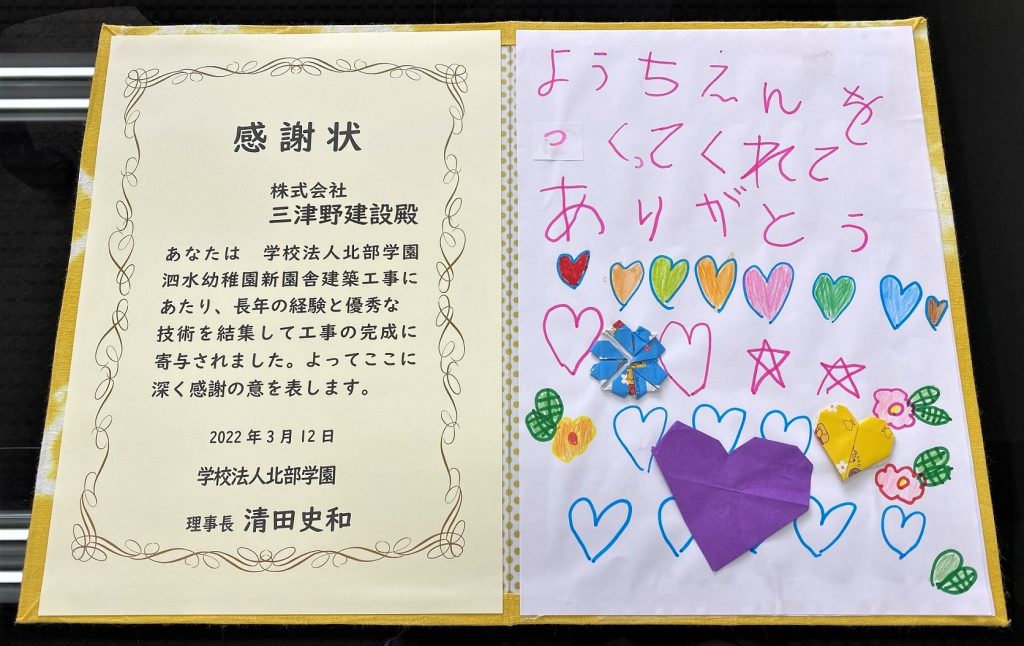 感謝状
株式会社
三津野建設殿
あなたは 学校法人北部学園
泗水幼稚園新園舎建築工事に
あたり、長年の経験と優秀な
技術を結集して工事の完成に
寄与されました。よってここに
深く感謝の意を表します。
2022年3月12日
学校法人北部学園
理事長 清田史和
ようちえんを
つくってくれて
ありがとう